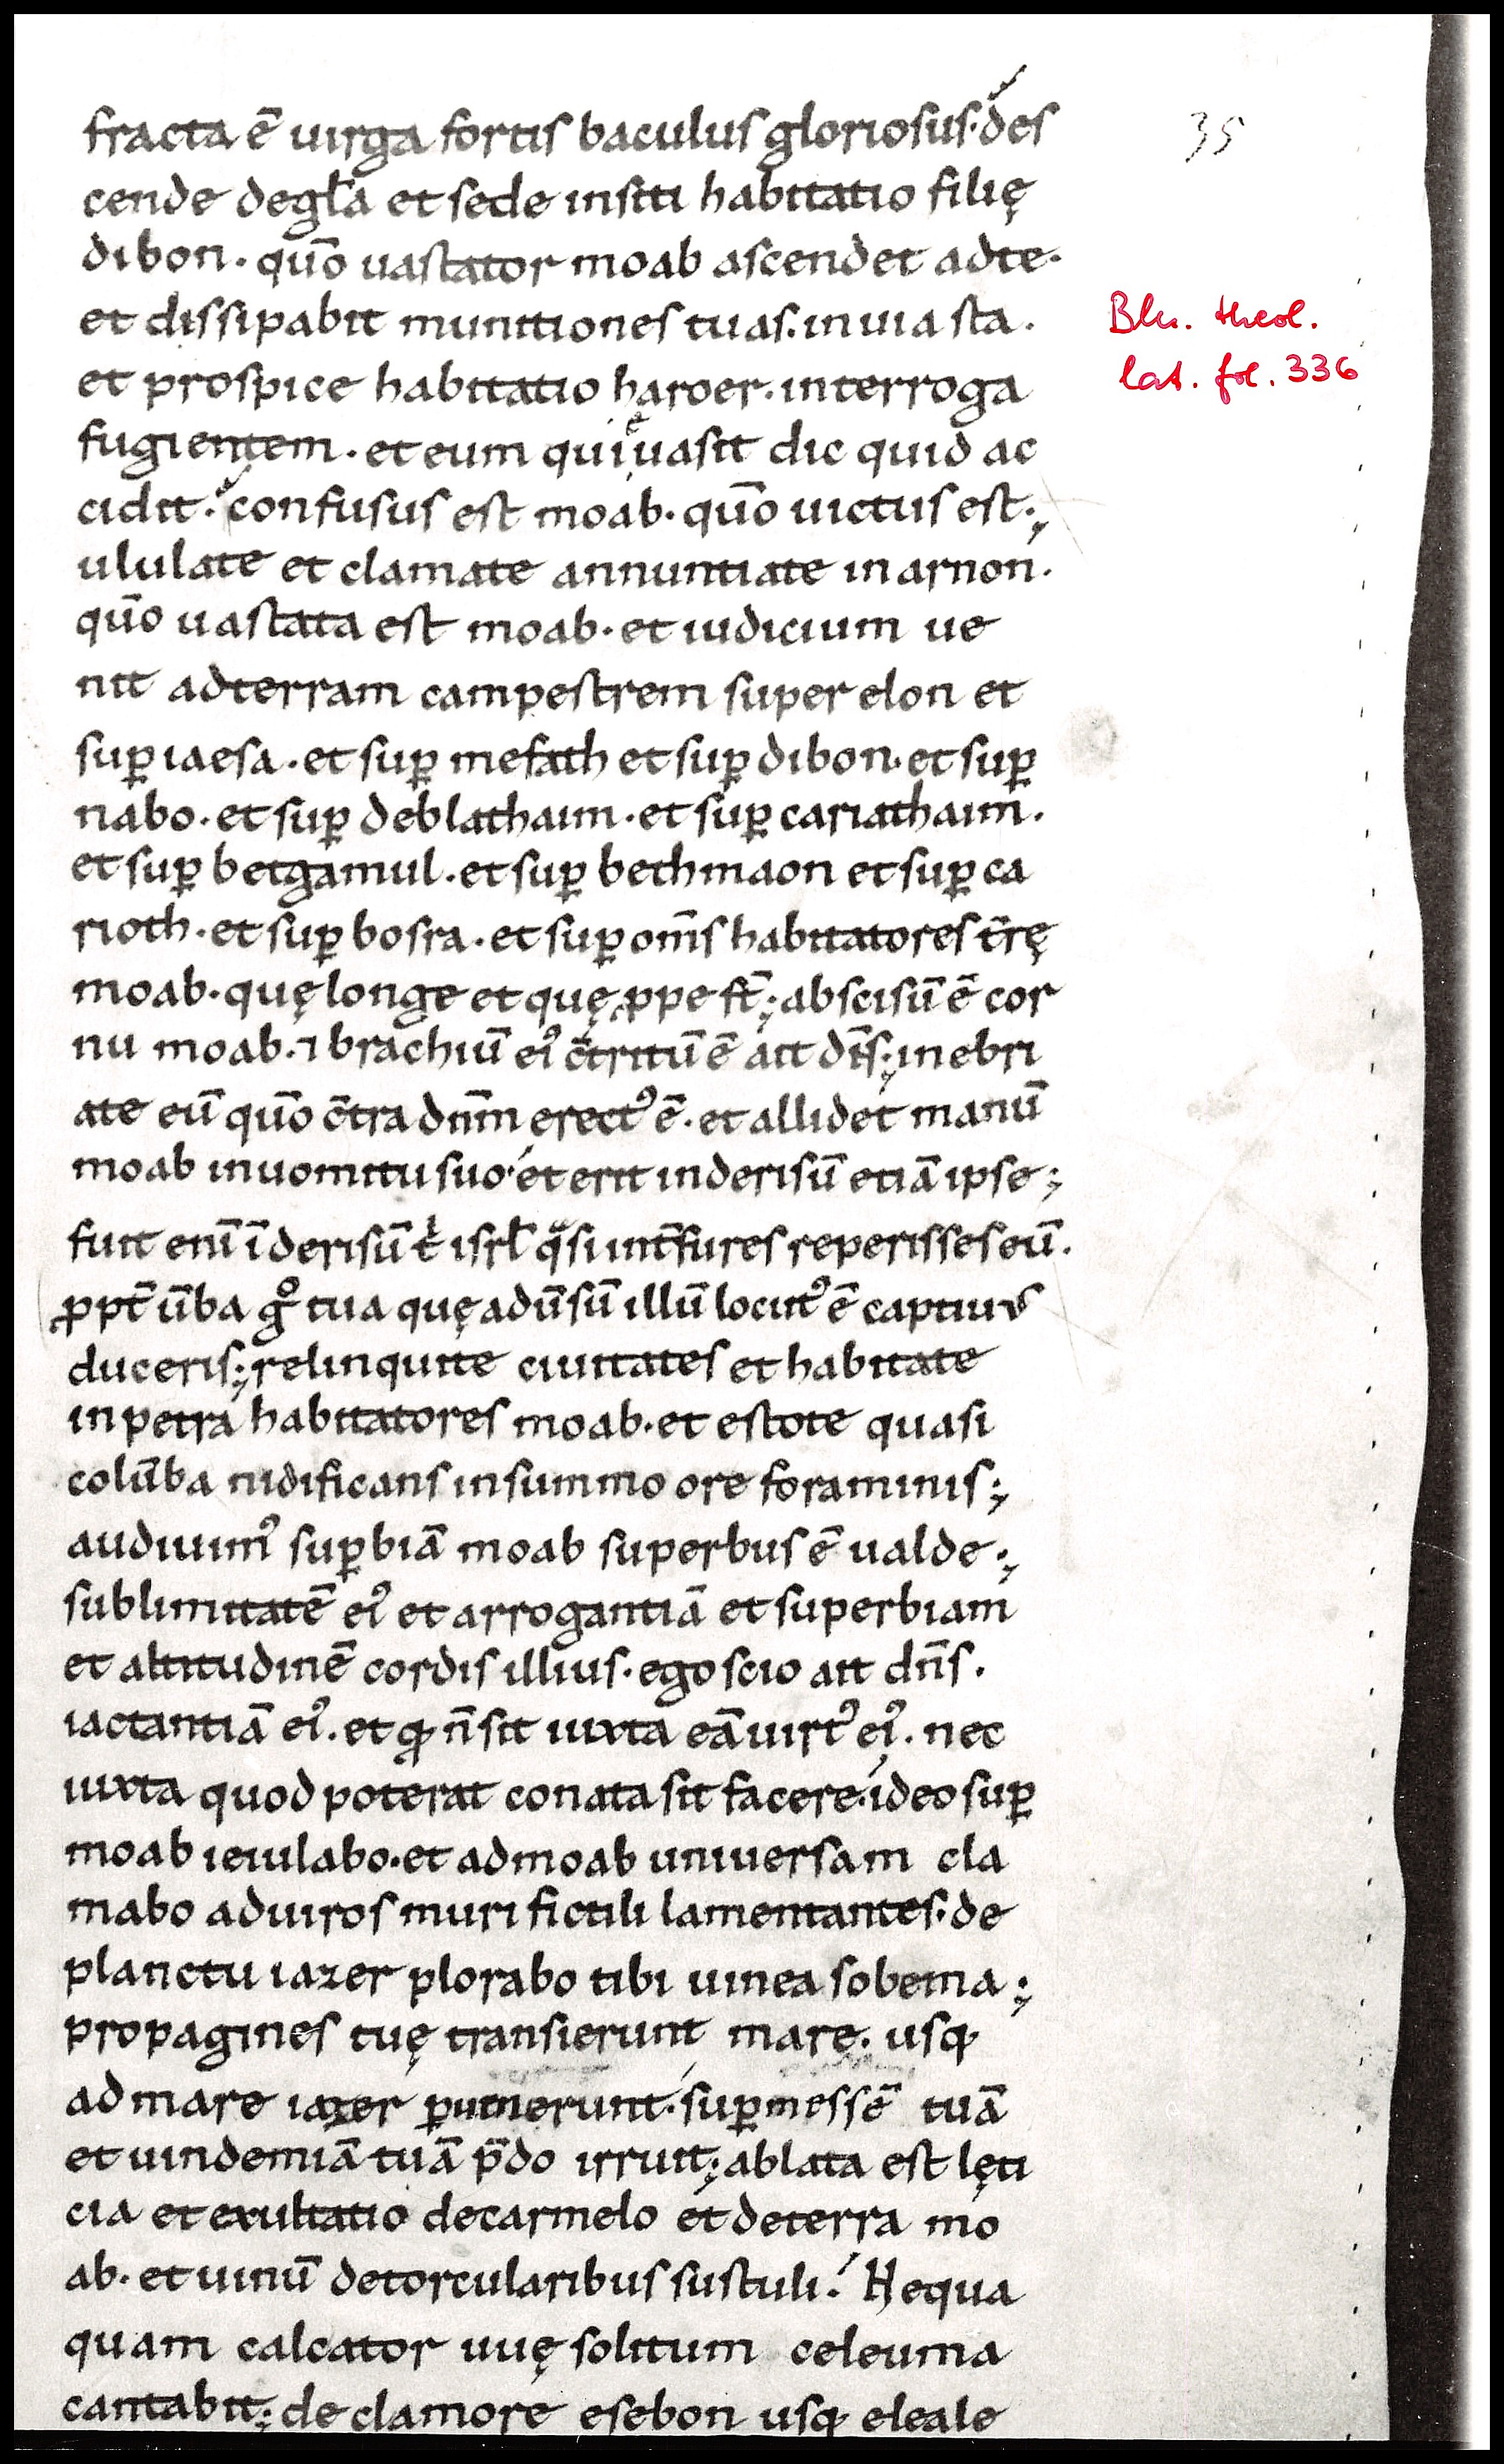 fracta ē uirga fortis baculus gloriosus· des
35
cende degl̄a et sede insiti habitatio filię
dibon · quō uastator moab ascendet adte·
et dissipabit munitiones tuas. inuia sta .
Bln. theol.
et prospice habitatio haroer. interroga
lat. fol. 336
fugientem . et eum qui ęuasit dic quid ac
cidit. confusus est moab. quō uictus est.,
ululate et clamate annuntiate in arnon.
quō uastata est moab. et iudicium ue
nit adterram campestrem super elon et
suꝑ iaesa . et suꝑ mefath et suꝑ dibon. et suꝑ
nabo. et suꝑ deblathaim . et suꝑ cariathaim.
et suꝑ betgamul . et suꝑ bethmaon et suꝑ ca
rioth . et suꝑ bosra . et suꝑ om̄s habitatores t̄rę
moab . quę longe et quę ꝓpe st̄; abscisū ē cor
nu moab. ⁊ brachiū eiꝰ c̄tritū ē ait dn̄s; inebri
ate eū quō c̄tra dnm̄ erectꝰ ē . et allidet manū
moab inuomitu suo. et erit inderisū etiā ipse;
fuit eni ī derisū t̄ isrl̄ qͣsi int̄ fures reperisses eū .
ꝓpt̄ ūba gͦ tua quę adūsū illū locutꝰ ē captiuꝰ
duceris; relinquite ciuitates et habitate
inpetra habitatores moab. et estote quasi
colūba nidificans insummo ore foraminis;
audiuimꝰ suꝑbiā moab superbus ē ualde.,
sublimitatē eiꝰ et arrogantiā et superbiam
et altitudinē cordis illius. ego scio ait dn̄s .
iactantiā eiꝰ. et qđ n̄ sit iuxta eā uirtꝰ eiꝰ. nec
iuxta quod poterat conata sit facere. ideo suꝑ
moab ieiulabo. et admoab uniuersam cla
mabo aduiros muri fictili lamentantes. de
planctu iazer plorabo tibi uinea sobema;
propagines tuę transierunt mare. usq;
ad mare iazer ꝑuenerunt. suꝑ messē tuā
et uindemiā tuā p̄do irruit; ablata est lęti
cia et exultatio decarmelo et deterra mo
ab. et uinū detorcularibus sustuli. Nequa
quam calcator uuę solitum celeuma
cantabit; de clamore esebon usq; eleale